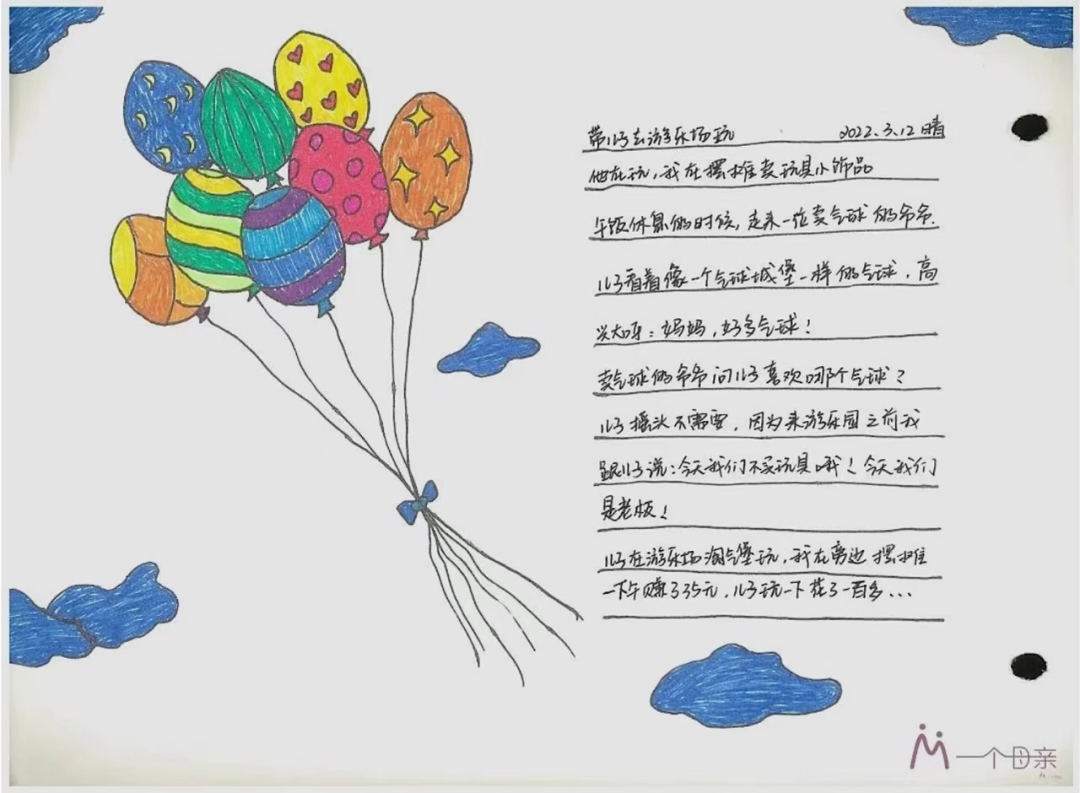 带儿子去游乐场玩 2022.3.12 晴
他在玩,我在摆摊卖玩具小饰品
午饭休息的时候,走来一位卖气球的爷爷.
儿子看着像一个气球城堡一样的气球,高
兴大呼:妈妈,好多气球!
卖气球的爷爷问儿子喜欢哪个气球?
儿子摇头不需要,因为来游乐园之前我
跟儿子说:今天我们不买玩具哦!今天我们
是老板!
儿子在游乐场淘气堡玩,我在旁边摆摊
一下午赚了35元,儿子玩一下花了一百多...
一个母亲